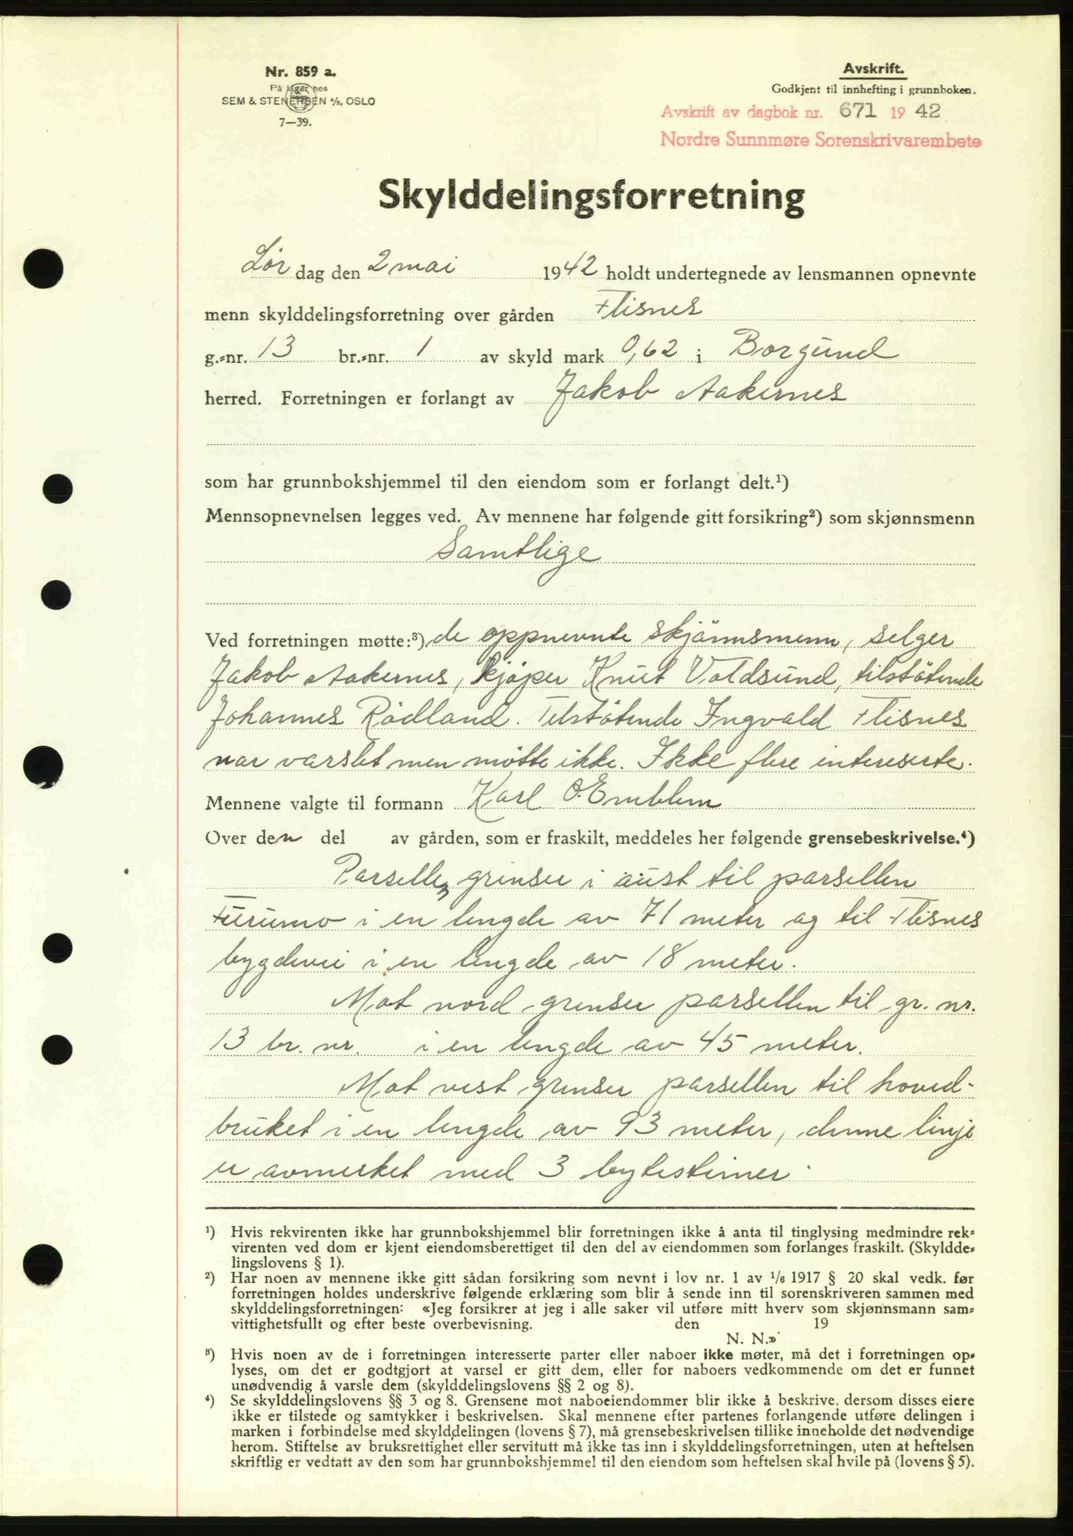 Nr. 859 a.
På lager hos
SEM & STENERSEN A/S, OSLO
7—39.
Avskrift.
Godkjent til innhefting i grunnboken.
Avskrift av dagbok nr. 671 19 42
Nordre Sunnmøre Sorenskrivarembete
Skylddelingsforretning
Lør dag den 2 mai 1942 holdt undertegnede av lensmannen opnevnte
menn skylddelingsforretning over gården Flisnes
g.-nr. 13 br.-nr. 1 av skyld mark 0,62 i Borgund
herred. Forretningen er forlangt av Jakob Aakernes
som har grunnbokshjemmel til den eiendom som er forlangt delt.¹)
Mennsopnevnelsen legges ved. Av mennene har følgende gitt forsikring²) som skjønnsmenn
Samtlige
Ved forretningen møtte:³) de oppnevnte skjönnsmenn, selger
Jakob Aakernes, kjøper Knut Voldsund, tilstötende
Johannes Rödland. Tilstötende Ingvald Flisnes
var varslet men mötte ikke. Ikke flere intereserte.
Mennene valgte til formann Karl O. Emblem
Over den del av gården, som er fraskilt, meddeles her følgende grensebeskrivelse.⁴)
Parsellen grenser i aust til parsellen
Furumo i en lengde av 71 meter og til Flisnes
bygdevei i en lengde av 18 meter.
Mot nord grenser parsellen til gr. nr.
13 br. nr. i en lengde av 45 meter.
Mot vest grenser parsellen til hoved-
bruket i en lengde av 93 meter, denne linje
er avmerket med 3 bytesteiner.
¹) Hvis rekvirenten ikke har grunnbokshjemmel blir forretningen ikke å anta til tinglysing medmindre rek-
virenten ved dom er kjent eiendomsberettiget til den del av eiendommen som forlanges fraskilt. (Skyldde-
lingslovens § 1).
²) Har noen av mennene ikke gitt sådan forsikring som nevnt i lov nr. 1 av ¹/₆ 1917 § 20 skal vedk. før
forretningen holdes underskrive følgende erklæring som blir å sende inn til sorenskriveren sammen med
skylddelingsforretningen: «Jeg forsikrer at jeg i alle saker vil utføre mitt hverv som skjønnsmann sam-
vittighetsfullt og efter beste overbevisning. den 19
N. N.»
³) Hvis noen av de i forretningen interesserte parter eller naboer ikke møter, må det i forretningen op-
lyses, om det er godtgjort at varsel er gitt dem, eller for naboers vedkommende om det er funnet
unødvendig å varsle dem (skylddelingslovens §§ 2 og 8).
⁴) Se skylddelingslovens §§ 3 og 8. Grensene mot naboeiendommer blir ikke å beskrive, dersom disses eiere
ikke er tilstede og samtykker i beskrivelsen. Skal mennene efter partenes forlangende utføre delingen i
marken i forbindelse med skylddelingen (lovens § 7), må grensebeskrivelsen tillike inneholde det nødvendige
herom. Stiftelse av bruksrettighet eller servitutt må ikke tas inn i skylddelingsforretningen, uten at heftelsen
skriftlig er vedtatt av den som har grunnbokshjemmel til den eiendom som heftelsen skal hvile på (lovens § 5).